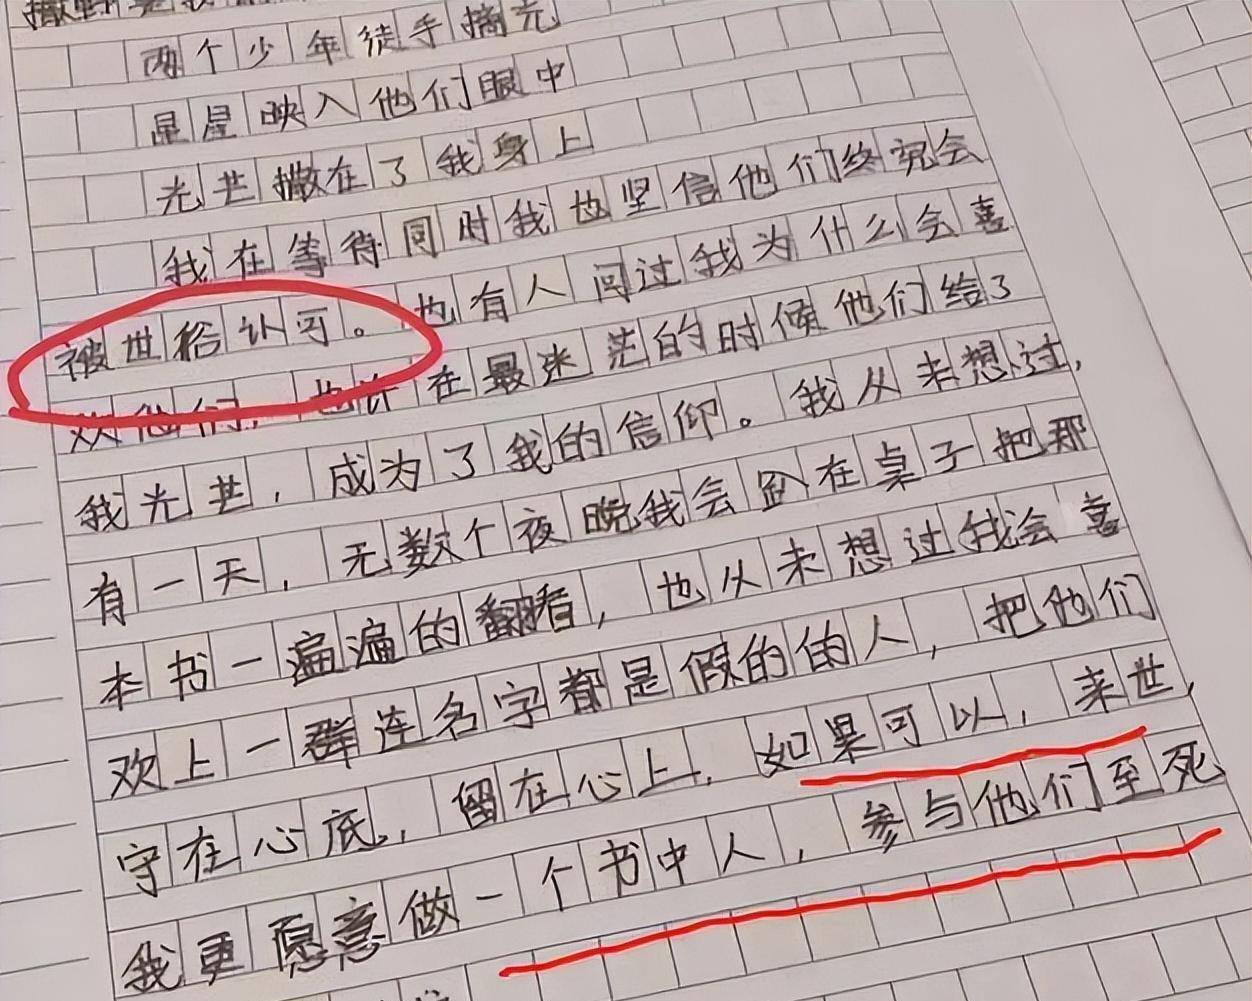 两个少年徒手摘光
星星映入他们眼中
光芒撒在了我身上
我在等待同时我也坚信他们终究会
被世俗认可。也有人问过我为什么会喜
欢他们,也许在最迷茫的时候他们给了
我光芒,成为了我的信仰。我从未想过,
有一天,无数个夜晚我会趴在桌子把那
本书一遍遍的翻看,也从未想过我会喜
欢上一群连名字都是假的的人,把他们
守在心底,留在心上,如果可以,来世,
我更愿意做一个书中人,参与他们至死